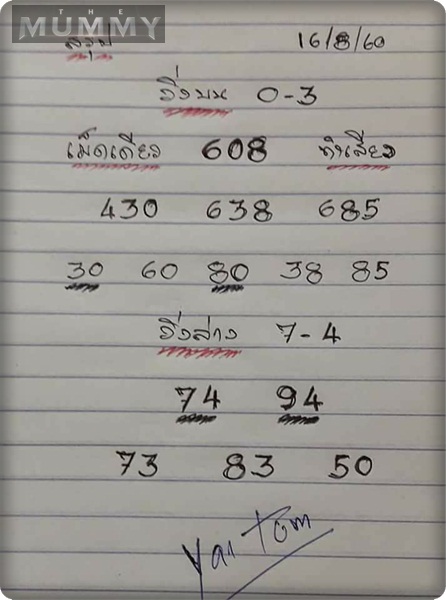 THE
MUMMY
สรุป 16/8/60
วิ่งบน 0-3
เม็ดเดียว 608
430 638 685
30 60 80 38 85
วิ่งล่าง 7-4
74 94
73 83 50